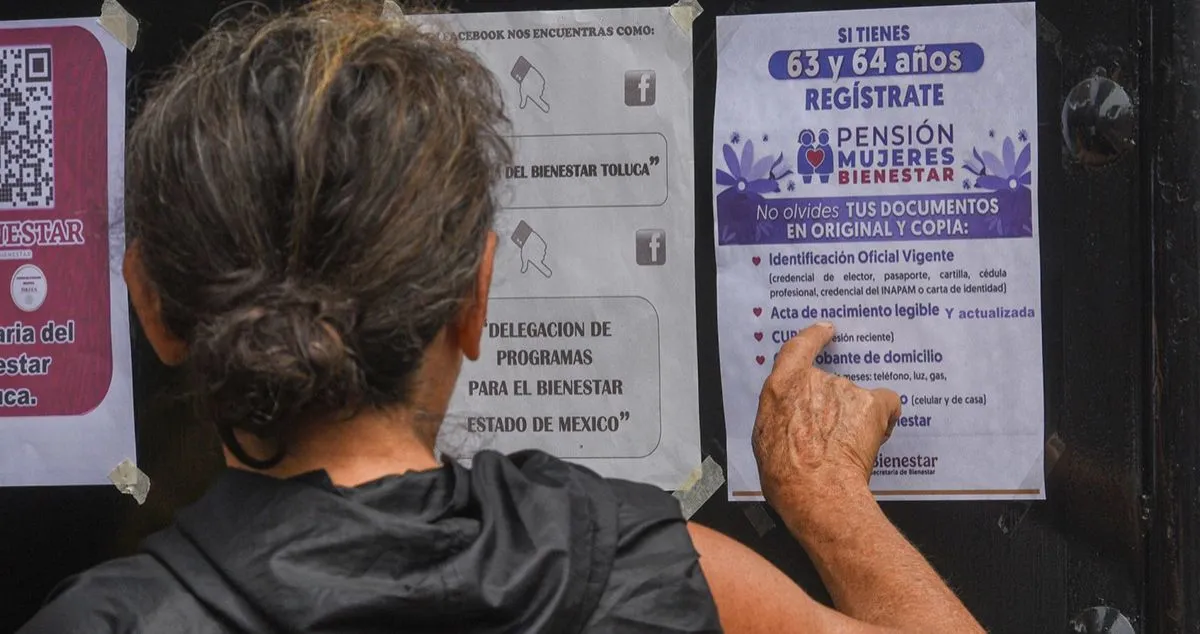 IESTAR
BIENESTAR
aria del
estar
ca.
FACEBOOK NOS ENCUENTRAS COMO:
f
DEL BIENESTAR TOLUCA”
f
“DELEGACION DE
PROGRAMAS
PARA EL BIENESTAR
ESTADO DE MEXICO”
SI TIENES
63 y 64 años
REGÍSTRATE
PENSIÓN
MUJERES
BIENESTAR
No olvides TUS DOCUMENTOS
EN ORIGINAL Y COPIA:
Identificación Oficial Vigente
(credencial de elector, pasaporte, cartilla, cédula
profesional, credencial del INAPAM o carta de identidad)
Acta de nacimiento legible Y actualizada
CUR esión reciente)
robante de domicilio
meses: teléfono, luz, gas,
o (celular y de casa)
estar
Bienestar
Secretaría de Bienestar